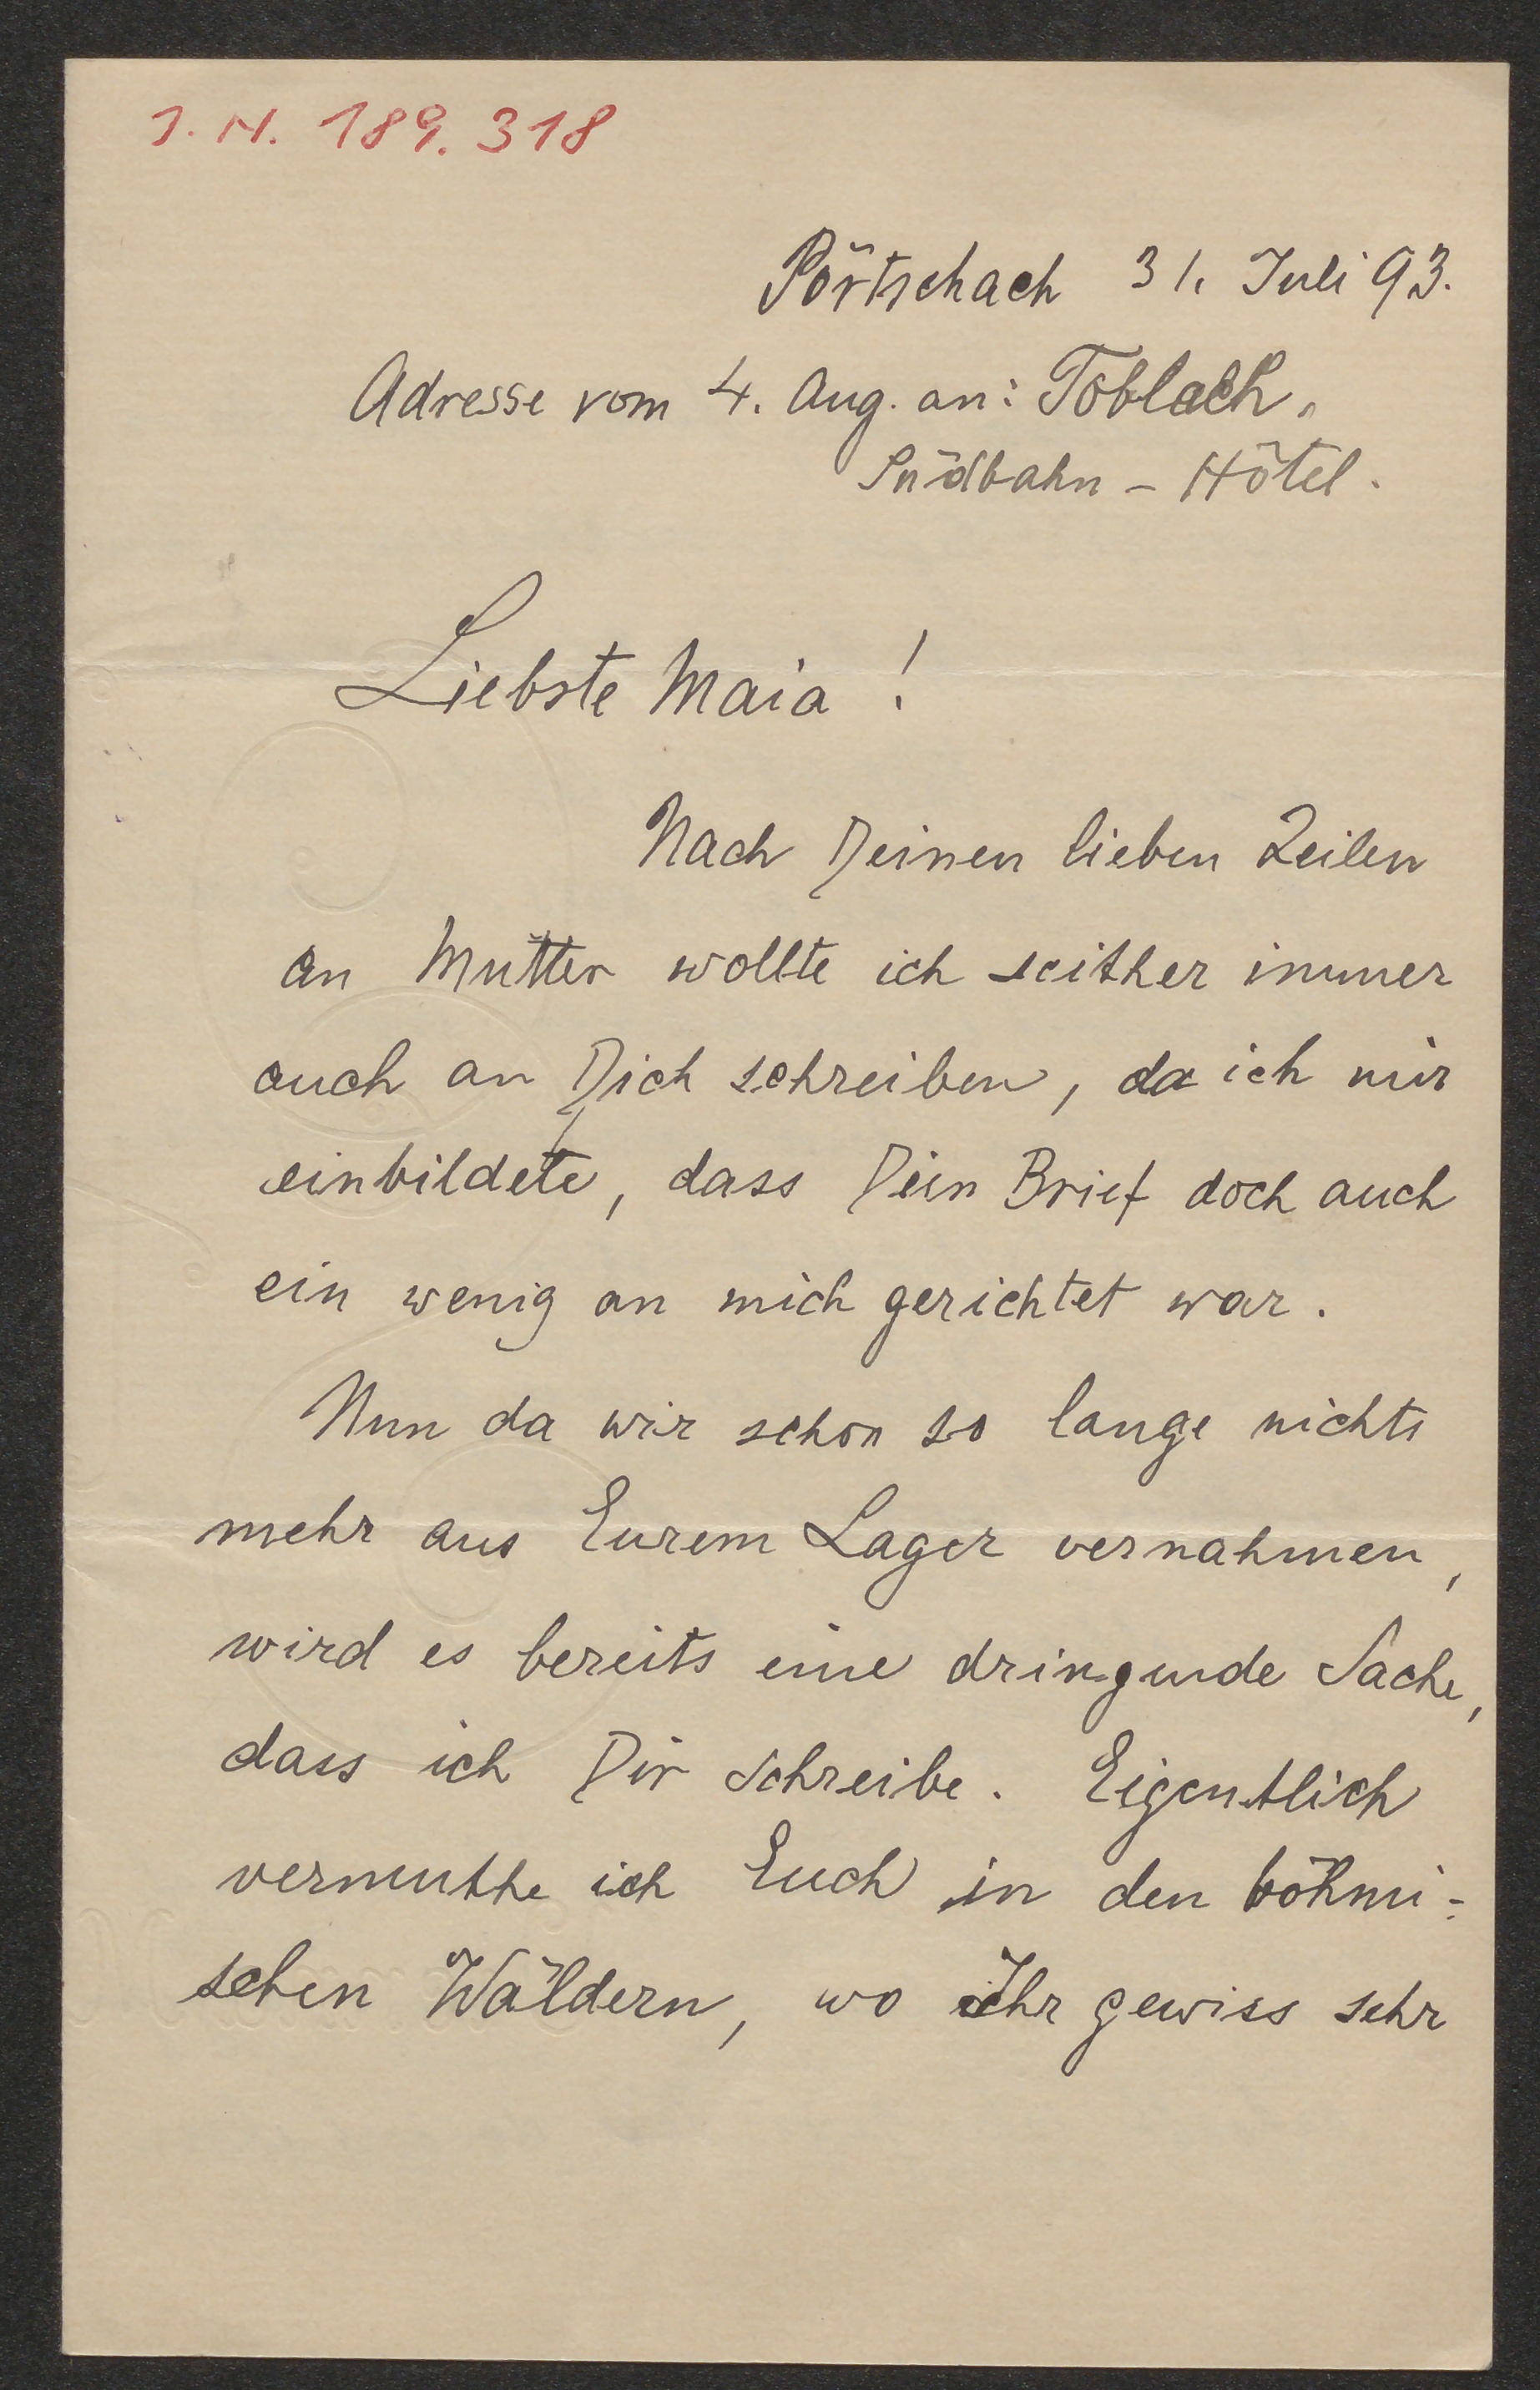 I. N. 189.318
Pörtschach 31. Juli 93.
Adresse vom 4. Aug. an: Toblach,
Südbahn - Hôtel.
Liebste Maia!
Nach Deinen lieben Zeilen
an Mutter wollte ich seither immer
auch an Dich schreiben, da ich mir
einbildete, dass Dein Brief doch auch
ein wenig an mich gerichtet war.
Nun da wir schon so lange nichts
mehr aus Eurem Lager vernahmen,
wird es bereits eine dringende Sache,
dass ich Dir schreibe. Eigentlich
vermuthe ich Euch in den böhmi-
schen Wäldern, wo Ihr gewiss sehr